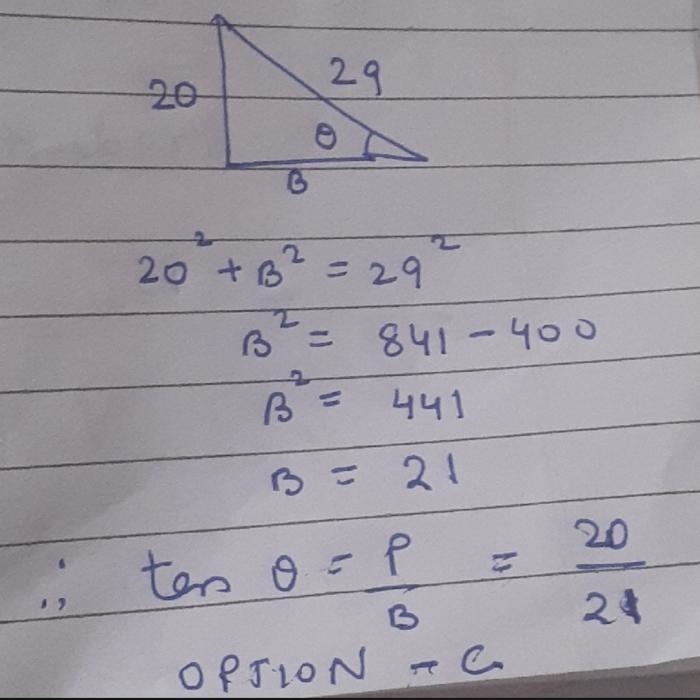 29
20
θ
B
20² + B² = 29²
B² = 841 - 400
B² = 441
B = 21
∴ tan θ = P/B = 20/21
OPTION - C